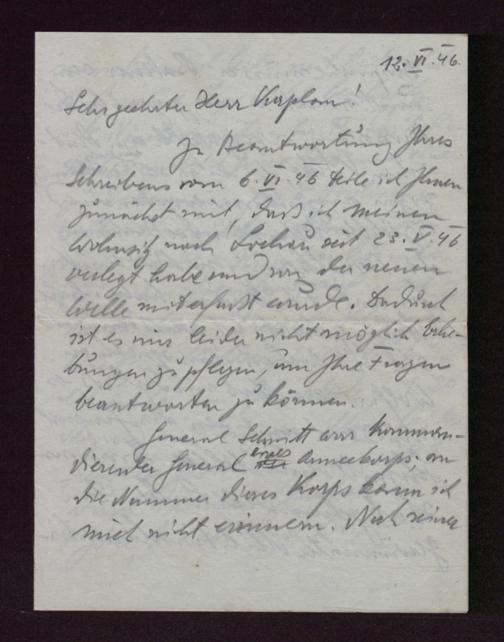 12. VI. 46.
Sehr geehrter Herr Kaplan!
In Beantwortung Ihres
Schreibens vom 6. VI. 46 teile ich Ihnen
zunächst mit, daß ich meinen
Wohnsitz nach Lochau seit 23. V. 46
verlegt habe und von der neuen
Welle miterfasst wurde. Dadurch
ist es mir leider nicht möglich Erhe-
bungen zu pflegen, um Ihre Fragen
beantworten zu können.
General Schmitt war Komman-
dierender General eines Armeekorps; an
die Nummer dieses Korps kann ich
mich nicht erinnern. Nach seiner